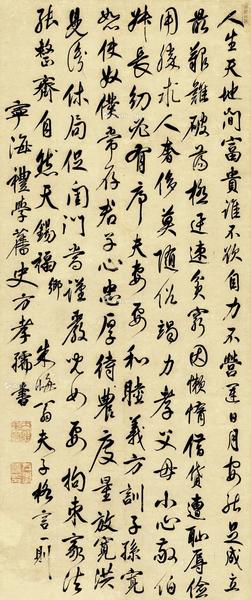 人生天地间富貴誰不欲自力不營運日月安能足成立
最艱難破蕩極迅速貧窮因懶惰借貸連恥辱儉
用勝求人奢侈莫隨俗竭力孝父母小心敬伯
叔長幼必有序夫妻要和睦義方訓子孫寬
恕使奴僕常存君子心忠厚待農度量放寬洪
見得休局促閨門當谨嚴兒女要拘束家法
張整齋自然天錫福 朱晦翁夫子格言一則
寧海禮學舊史方孝孺書
鄉